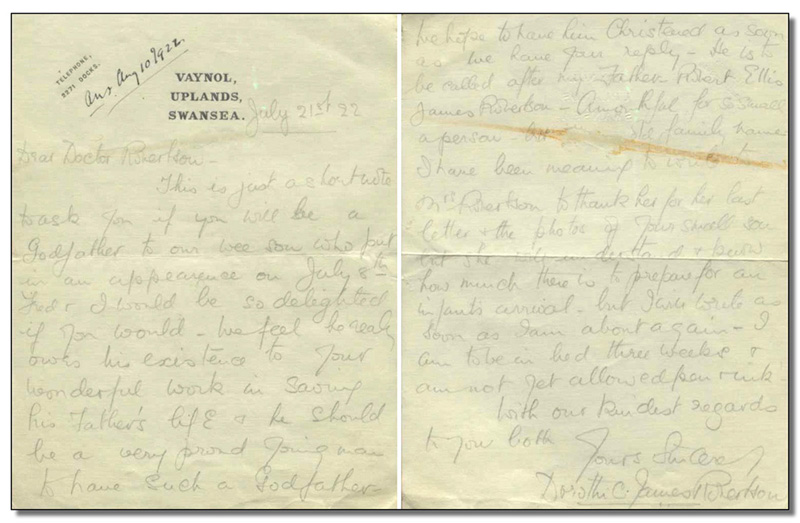 TELEPHONE,
2271 DOCKS.
Ans. Aug 10 1922.
VAYNOL,
UPLANDS,
SWANSEA.
July 21st 22
Dear Doctor Robertson -
This is just a short note
to ask you if you will be a
Godfather to our wee son who put
in an appearence on July 8th
Fred & I would be so delighted
if you would - We feel he really
owes his existence to your
wonderful work in saving
his Father's life & he should
be a very proud young man
to have such a Godfather -
We hope to have him Christened as soon
as we have your reply - He is to
be called after my Father - Robert Ellis
James Robertson - A mouthful for so small
a person - family names
I have been meaning to write to
Mrs Robertson to thank her for her last
letter & the photos of your small son
but she will understand & know
how much there is to prepare for an
infants arrival - but I will write as
soon as I am about again - I
am to be in bed three weeks &
am not yet allowed pen & ink -
With our kindest regards
to you both
Yours Sincerely
Dorothy C. James Robertson